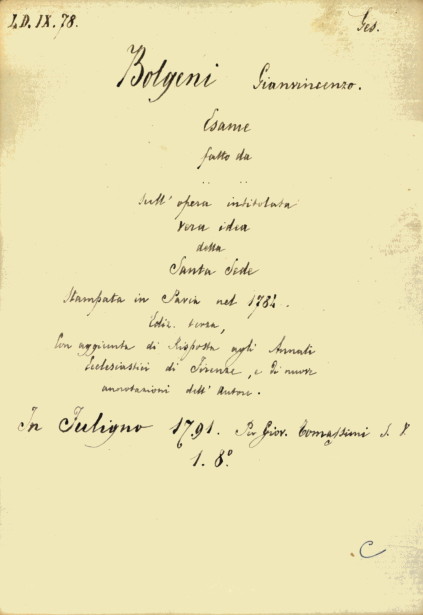 I.D. IX. 78. Ges.
Bolgeni Gianvincenzo.
Esame
fatto da
.. ..
sull' opera intitolata
vera idea
della
Santa Sede
Stampata in Pavia nel 1784.
Ediz. terza,
Con aggiunta di Risposta agli Annali
Ecclesiastici di Firenze, e di nuove
annotazioni dell' Autore.
In Fuligno 1791. Per Giov. Tomassini S. V
1. 8º.
C